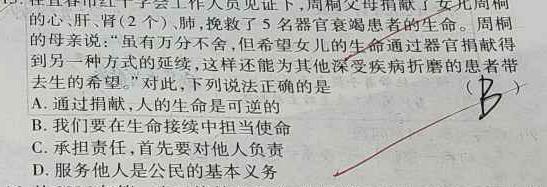 在宜春市红十字会工作人员见证下,周桐父母捐献了女儿周桐
的心、肝、肾(2 个)、肺,挽救了 5 名器官衰竭患者的生命。周桐
的母亲说:“虽有万分不舍,但希望女儿的生命通过器官捐献得
到另一种方式的延续,这样还能为其他深受疾病折磨的患者带
去生的希望。”对此,下列说法正确的是 ( B )
A. 通过捐献,人的生命是可逆的
B. 我们要在生命接续中担当使命
C. 承担责任,首先要对他人负责
D. 服务他人是公民的基本义务